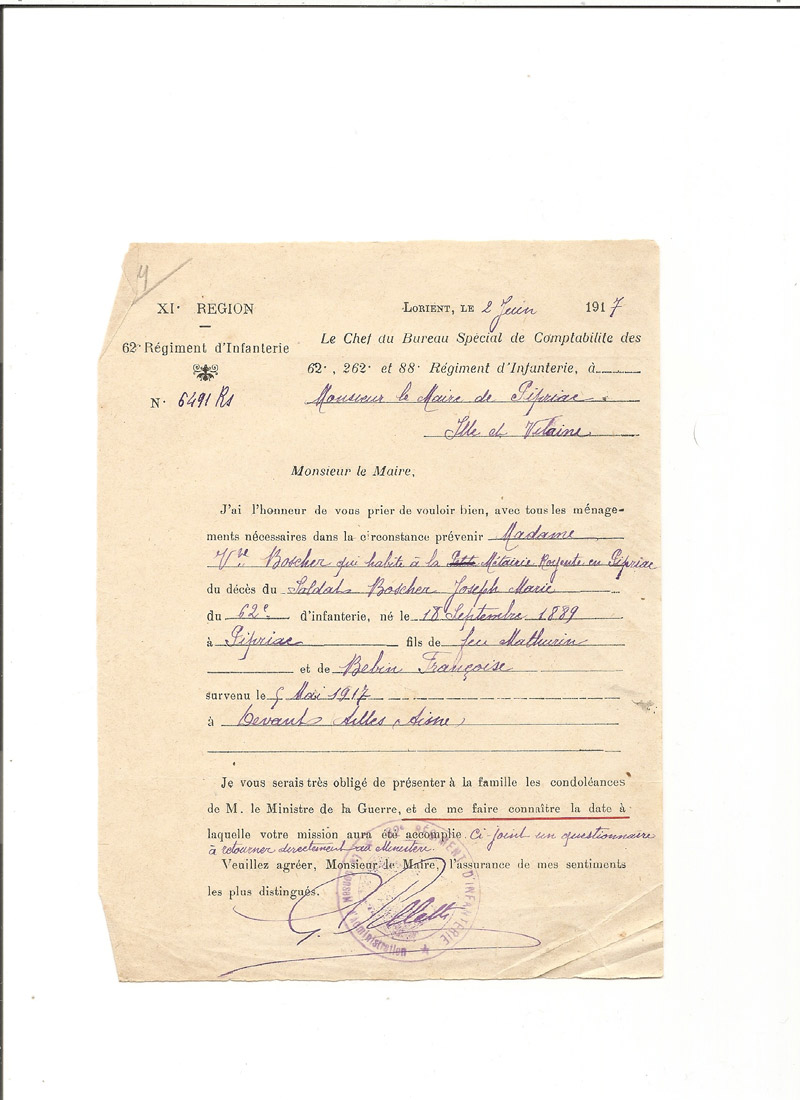 XIe REGION
LORIENT, LE 2 Juin 1917
62e Régiment d'Infanterie
Le Chef du Bureau Spécial de Comptabilité des
62e, 262e et 88e Régiment d'Infanterie, à
N° 6491 Rs
Monsieur le Maire de Pipriac
Ille et Vilaine
Monsieur le Maire,
J'ai l'honneur de vous prier de vouloir bien, avec tous les ménage-
ments nécessaires dans la circonstance prévenir Madame
Vve Boscher qui habite à la Petite Métairie en Pipriac
du décès du Soldat Boscher Joseph Marie
du 62e d'infanterie, né le 18 Septembre 1889
à Pipriac fils de feu Mathurin
et de Bebin Françoise
survenu le 5 Mai 1917
à Devant Ailles (Aisne)
Je vous serais très obligé de présenter à la famille les condoléances
de M. le Ministre de la Guerre, et de me faire connaître la date à
laquelle votre mission aura été accomplie. Ci joint un questionnaire
à retourner directement au Ministère.
Veuillez agréer, Monsieur le Maire, l'assurance de mes sentiments
les plus distingués.
62e RÉGIMENT D'INFANTERIE
Conseil d'administration